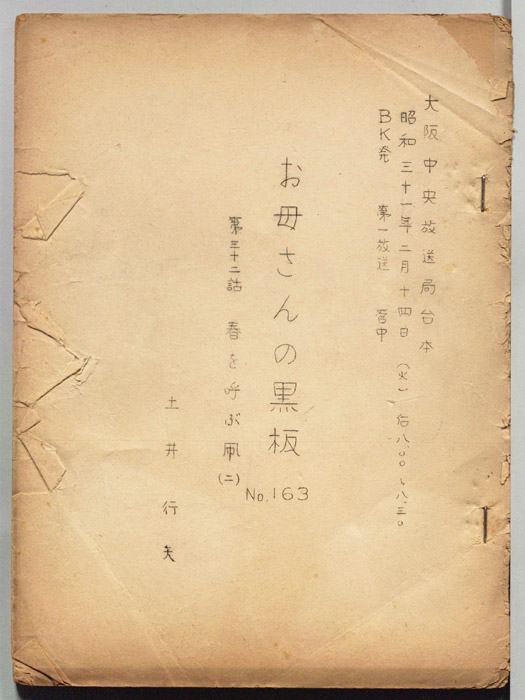 大阪中央放送局台本
昭和三十一年二月十四日(火)后八.〇〇〜八.三〇
BK発 第一放送 管中
お母さんの黒板
No.163
第三十二話 春を呼ぶ凧(二)
土井行夫